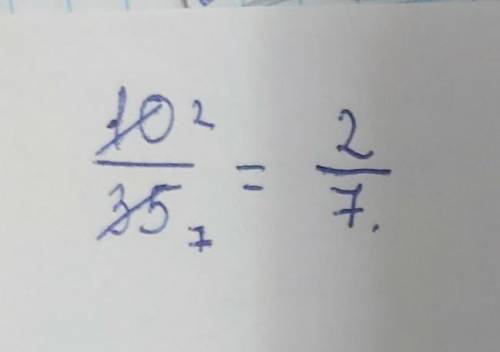 10 2
35 7 = 2/7.